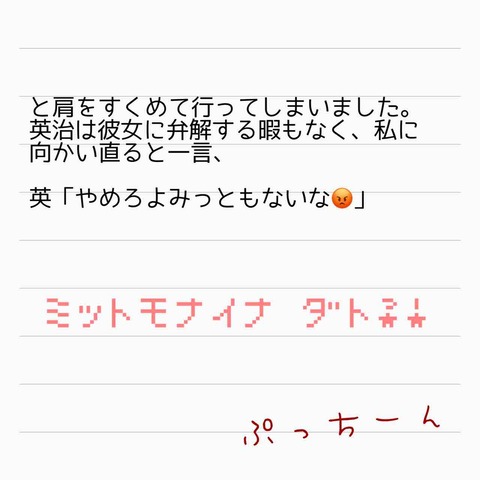 と肩をすくめて行ってしまいました。
英治は彼女に弁解する暇もなく、私に
向かい直ると一言、
英「やめろよみっともないな😡」
ミットモナイナ ダト⁇!
ぷっちーん